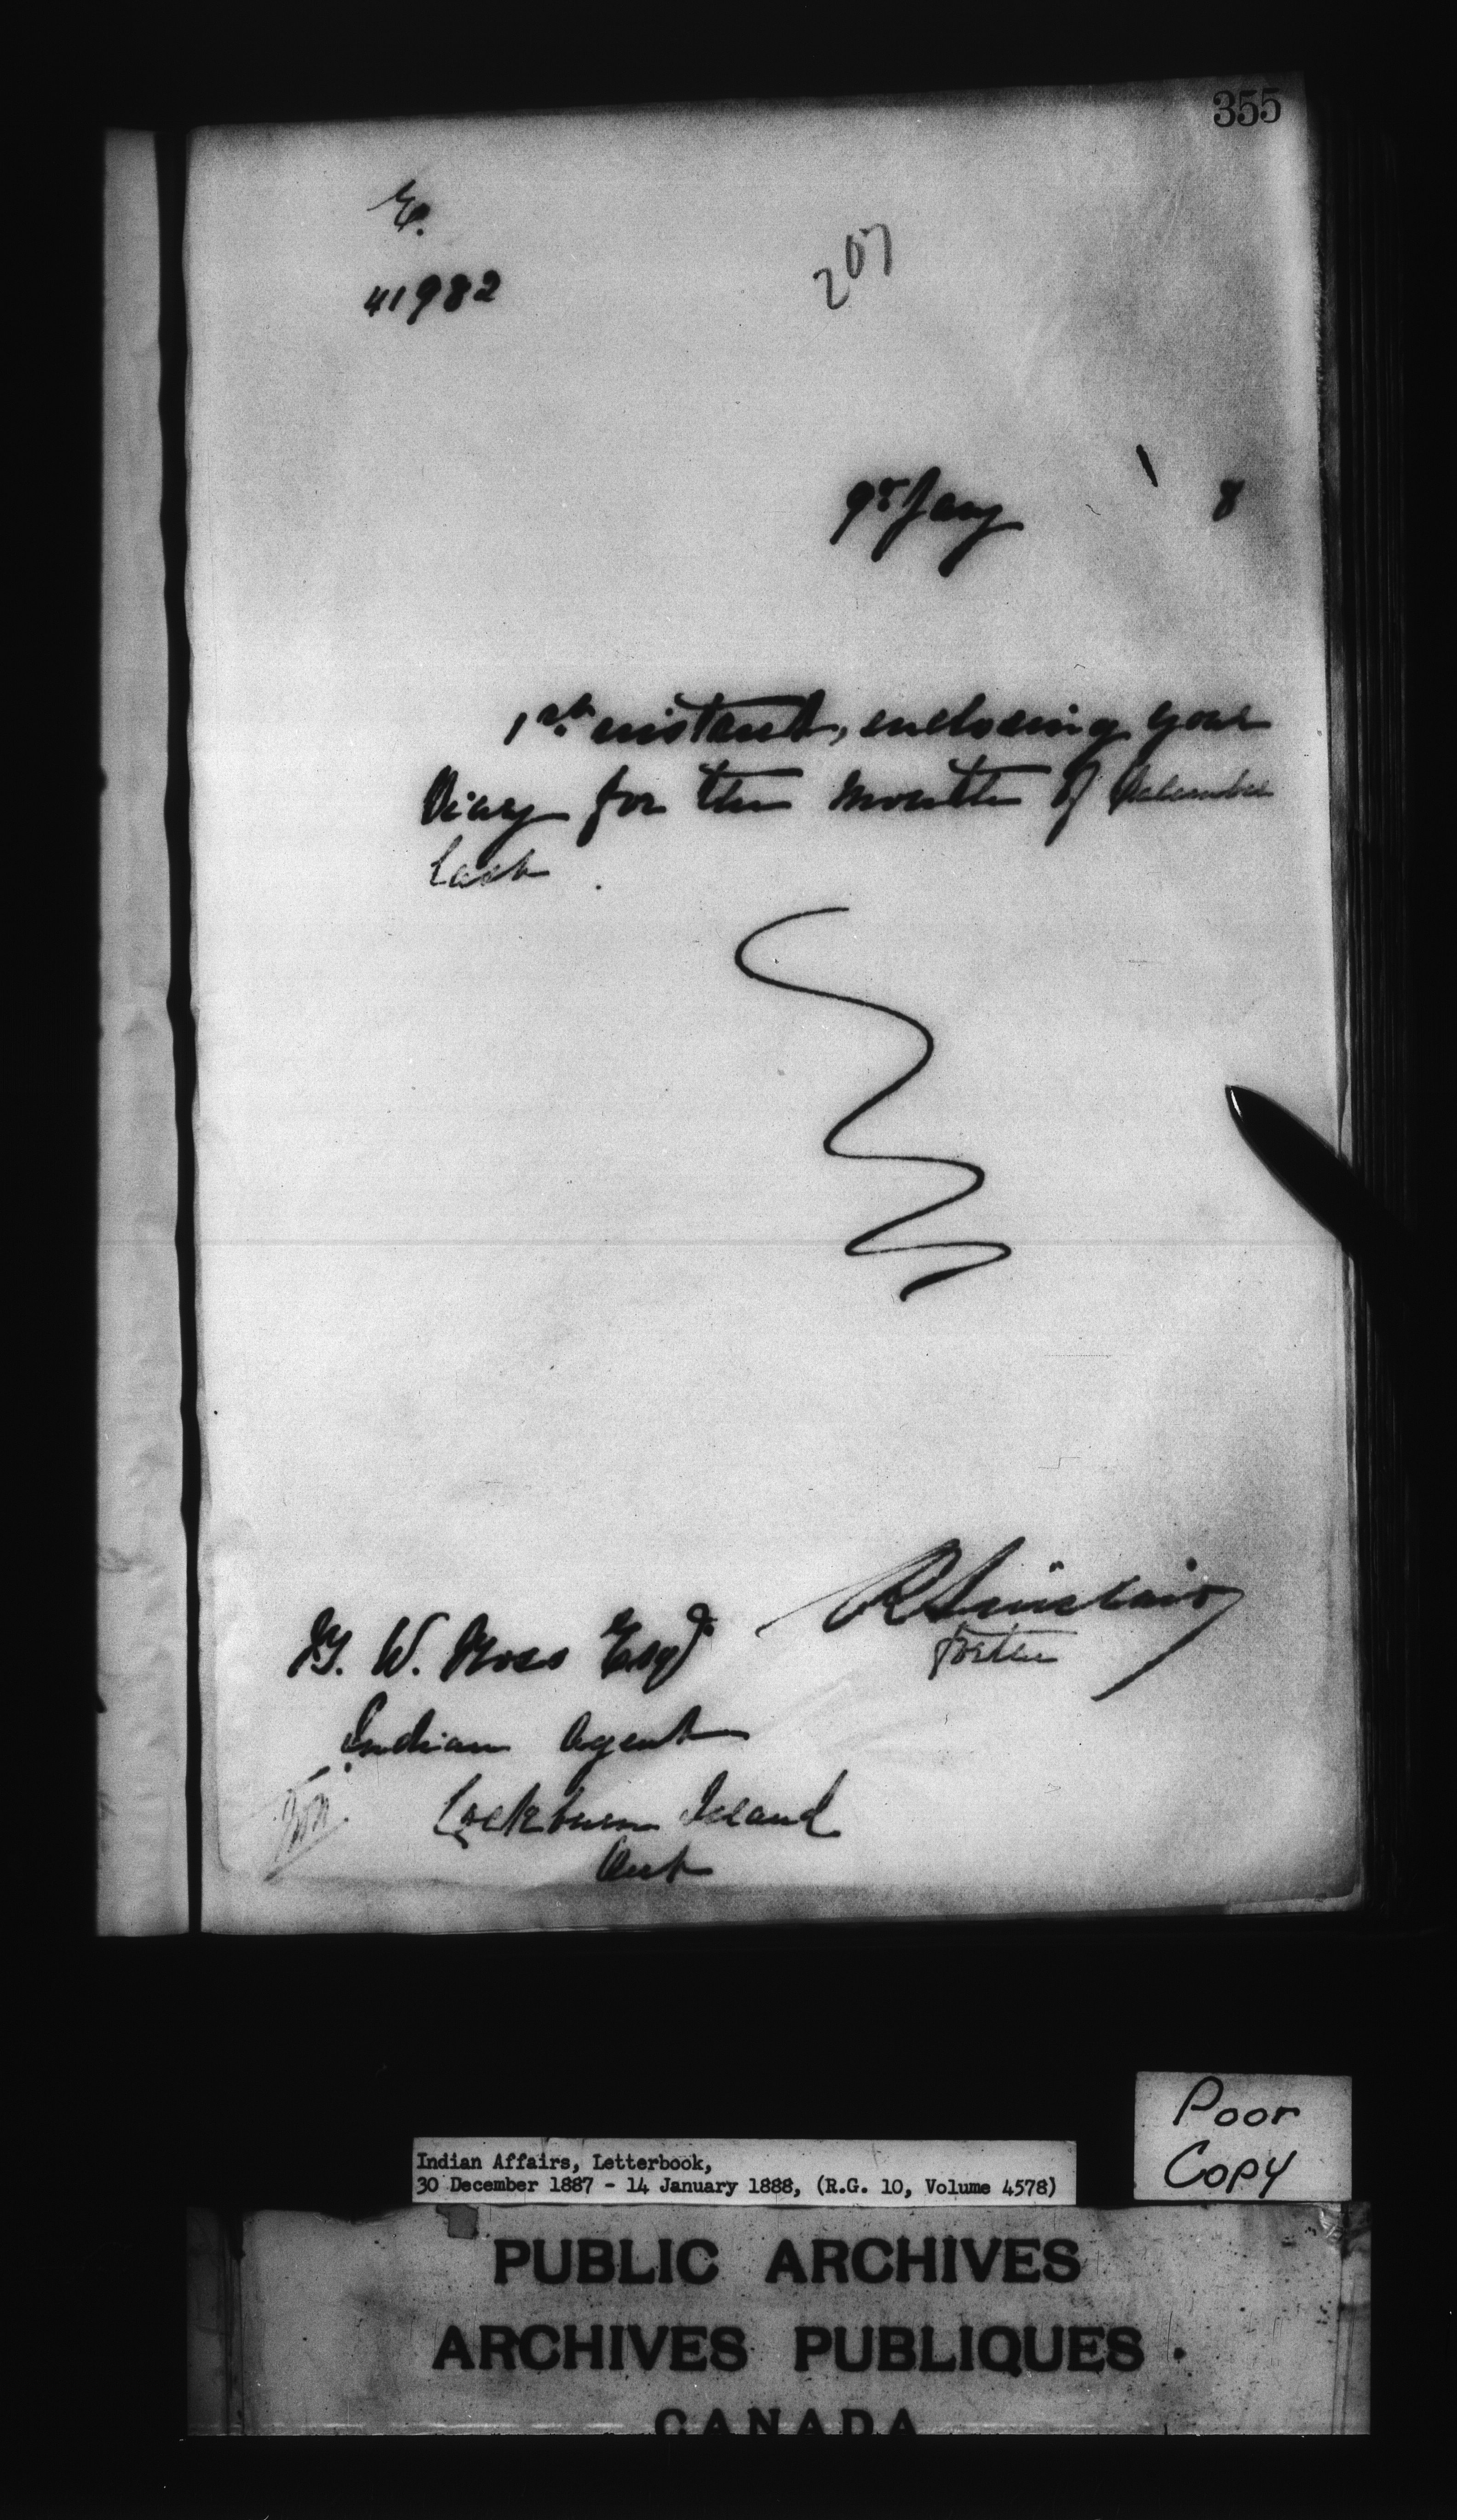 355
E.
41982
207
9th Jany 8
1st instant, enclosing your
Diary for the month of December
last.
R Sinclair
for the
B. W. Ross Esqr
Indian Agent
Cockburn Island
Ont
Poor
Copy
Indian Affairs, Letterbook,
30 December 1887 - 14 January 1888, (R.G. 10, Volume 4578)
PUBLIC ARCHIVES
ARCHIVES PUBLIQUES
CANADA